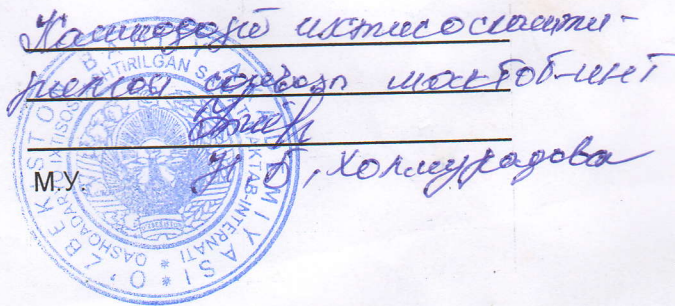 Кашкадарё ихтисослашти-
рилган санъат мактоб-инт
М.У. Н А, Холмурадова
O'ZBEKISTON BADIIY AKADEMIYASI * QASHQADARYO IXTISOSLASHTIRILGAN SAN'AT MAKTAB-INTERNATI *